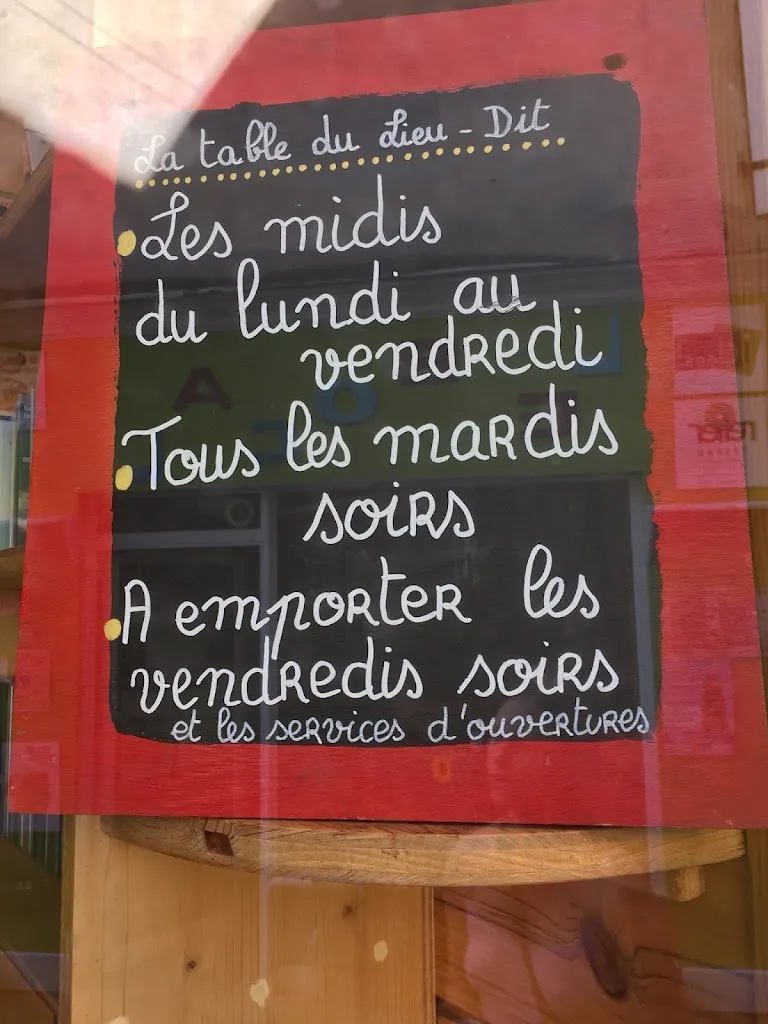 La table du Lieu-Dit
Les midis
du lundi au
vendredi
Tous les mardis
soirs
A emporter les
vendredis soirs
et les services d'ouvertures